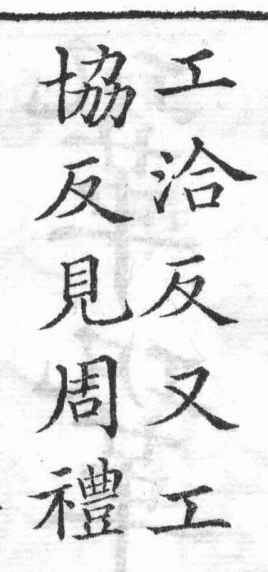 工洽反又工
協反見周禮